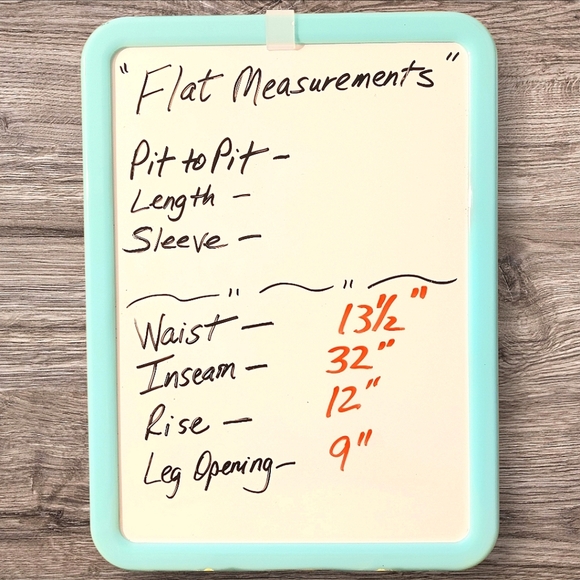 "Flat Measurements"
Pit to Pit -
Length -
Sleeve -
~ " ~ " ~
Waist - 13 1/2"
Inseam - 32"
Rise - 12"
Leg Opening - 9"